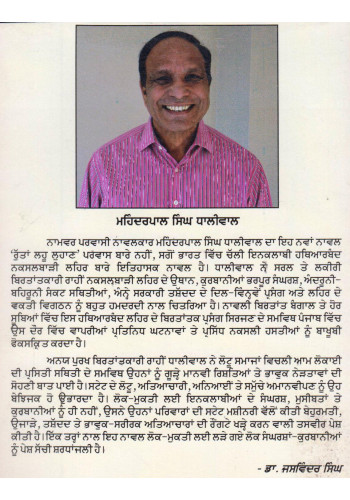 ਮਹਿੰਦਰਪਾਲ ਸਿੰਘ ਧਾਲੀਵਾਲ
ਨਾਮਵਰ ਪਰਵਾਸੀ ਨਾਵਲਕਾਰ ਮਹਿੰਦਰਪਾਲ ਸਿੰਘ ਧਾਲੀਵਾਲ ਦਾ ਇਹ ਨਵਾਂ ਨਾਵਲ
'ਰੁੱਤਾਂ ਲਹੂ ਲੁਹਾਣ' ਪਰਵਾਸ ਬਾਰੇ ਨਹੀਂ, ਸਗੋਂ ਭਾਰਤ ਵਿੱਚ ਚੱਲੀ ਇਨਕਲਾਬੀ ਹਥਿਆਰਬੰਦ
ਨਕਸਲਬਾੜੀ ਲਹਿਰ ਬਾਰੇ ਇਤਿਹਾਸਕ ਨਾਵਲ ਹੈ। ਧਾਲੀਵਾਲ ਨੇ ਸਰਲ ਤੇ ਲਕੀਰੀ
ਬਿਰਤਾਂਤਕਾਰੀ ਰਾਹੀਂ ਨਕਸਲਬਾੜੀ ਲਹਿਰ ਦੇ ਉਥਾਨ, ਕੁਰਬਾਨੀਆਂ ਭਰਪੂਰ ਸੰਘਰਸ਼, ਅੰਦਰੂਨੀ-
ਬਹਿਰੂਨੀ ਸੰਕਟ ਸਥਿਤੀਆਂ, ਅੰਨ੍ਹੇ ਸਰਕਾਰੀ ਤਸ਼ੱਦਦ ਦੇ ਦਿਲ-ਵਿੰਨ੍ਹਵੇਂ ਪ੍ਰਸੰਗ ਅਤੇ ਲਹਿਰ ਦੇ
ਵਕਤੀ ਵਿਗਠਨ ਨੂੰ ਬਹੁਤ ਹਮਦਰਦੀ ਨਾਲ ਚਿਤਰਿਆ ਹੈ। ਨਾਵਲੀ ਬਿਰਤਾਂਤ ਬੰਗਾਲ ਤੇ ਹੋਰ
ਸੂਬਿਆਂ ਵਿੱਚ ਇਸ ਹਥਿਆਰਬੰਦ ਲਹਿਰ ਦੇ ਬਿਰਤਾਂਤਕ ਪ੍ਰਸੰਗ ਸਿਰਜਣ ਦੇ ਸਮਵਿਥ ਪੰਜਾਬ ਵਿੱਚ
ਉਸ ਦੌਰ ਵਿੱਚ ਵਾਪਰੀਆਂ ਪ੍ਰਤਿਨਿਧ ਘਟਨਾਵਾਂ ਤੇ ਪ੍ਰਸਿੱਧ ਨਕਸਲੀ ਹਸਤੀਆਂ ਨੂੰ ਬਾਖੂਬੀ
ਫੋਕਸਕ੍ਰਿਤ ਕਰਦਾ ਹੈ।
ਅਨਯ ਪੁਰਖ ਬਿਰਤਾਂਤਕਾਰੀ ਰਾਹੀਂ ਧਾਲੀਵਾਲ ਨੇ ਲੋਟੂ ਸਮਾਜਾਂ ਵਿਚਲੀ ਆਮ ਲੋਕਾਈ
ਦੀ ਪ੍ਰਸਿਤੀ ਸਥਿਤੀ ਦੇ ਸਮਵਿਥ ਉਹਨਾਂ ਨੂੰ ਗੂੜ੍ਹੇ ਮਾਨਵੀ ਰਿਸ਼ਤਿਆਂ ਤੇ ਭਾਵੁਕ ਨੇੜਤਾਵਾਂ ਦੀ
ਸੋਹਣੀ ਬਾਤ ਪਾਈ ਹੈ। ਸਟੇਟ ਦੇ ਲੋਟੂ, ਅਤਿਆਚਾਰੀ, ਅਨਿਆਈਂ ਤੇ ਸਮੁੱਚੇ ਅਮਾਨਵੀਪਣ ਨੂੰ ਉਹ
ਬੇਝਿਜਕ ਹੋ ਉਭਾਰਦਾ ਹੈ। ਲੋਕ-ਮੁਕਤੀ ਲਈ ਇਨਕਲਾਬੀਆਂ ਦੇ ਸੰਘਰਸ਼, ਮੁਸੀਬਤਾਂ ਤੇ
ਕੁਰਬਾਨੀਆਂ ਨੂੰ ਹੀ ਨਹੀਂ, ਉਸਨੇ ਉਹਨਾਂ ਪਰਿਵਾਰਾਂ ਦੀ ਸਟੇਟ ਮਸ਼ੀਨਰੀ ਵੱਲੋਂ ਕੀਤੀ ਬੇਹੁਰਮਤੀ,
ਉਜਾੜੇ, ਤਸ਼ੱਦਦ ਤੇ ਭਾਵੁਕ-ਸਰੀਰਕ ਅਤਿਆਚਾਰਾਂ ਦੀ ਰੌਂਗਟੇ ਖੜ੍ਹੇ ਕਰਨ ਵਾਲੀ ਤਸਵੀਰ ਪੇਸ਼
ਕੀਤੀ ਹੈ। ਇੱਕ ਤਰ੍ਹਾਂ ਨਾਲ ਇਹ ਨਾਵਲ ਲੋਕ-ਮੁਕਤੀ ਲਈ ਲੜੇ ਗਏ ਲੋਕ ਸੰਘਰਸ਼ਾਂ-ਕੁਰਬਾਨੀਆਂ
ਨੂੰ ਪੇਸ਼ ਸੱਚੀ ਸ਼ਰਧਾਂਜਲੀ ਹੈ।
- ਡਾ. ਜਸਵਿੰਦਰ ਸਿੰਘ